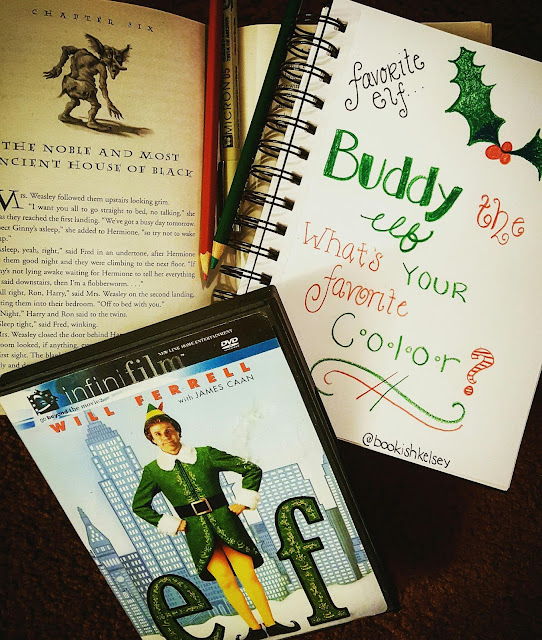 CHAPTER SIX
THE NOBLE AND MOST
NCIENT HOUSE OF BLACK
Mrs. Weasley followed them upstairs looking grim.
"I want you all to go straight to bed, no talking," she
as they reached the first landing. "We've got a busy day tomorrow.
pect Ginny's asleep," she added to Hermione, "so try not to wake
up."
sleep, yeah, right," said Fred in an undertone, after Hermione
them good night and they were climbing to the next floor. "If
y's not lying awake waiting for Hermione to tell her everything
said downstairs, then I'm a flobberworm. . . ."
ll right, Ron, Harry," said Mrs. Weasley on the second landing,
ting them into their bedroom. "Off to bed with you."
Night," Harry and Ron said to the twins.
leep tight," said Fred, winking.
Mrs. Weasley closed the door behind Harr
room looked, if anything,
first sight. The blan
MICRON 05
favorite
elf...
Buddy the
elf
What's YOUR
favorite
Color?
@bookishkelsey
NEW LINE HOME ENTERTAINMENT
DVD VIDEO
infinifilm™
go beyond the movie
WILL FERRELL
with JAMES CAAN
elf